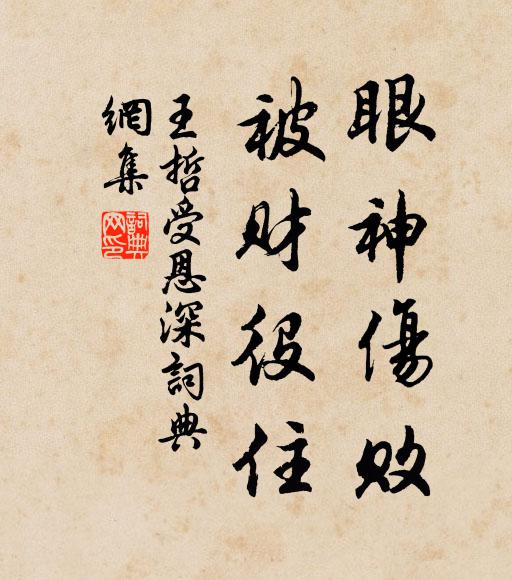 眼神傷敗
被财役住
王哲受恩深詞典
網集
詞典網印